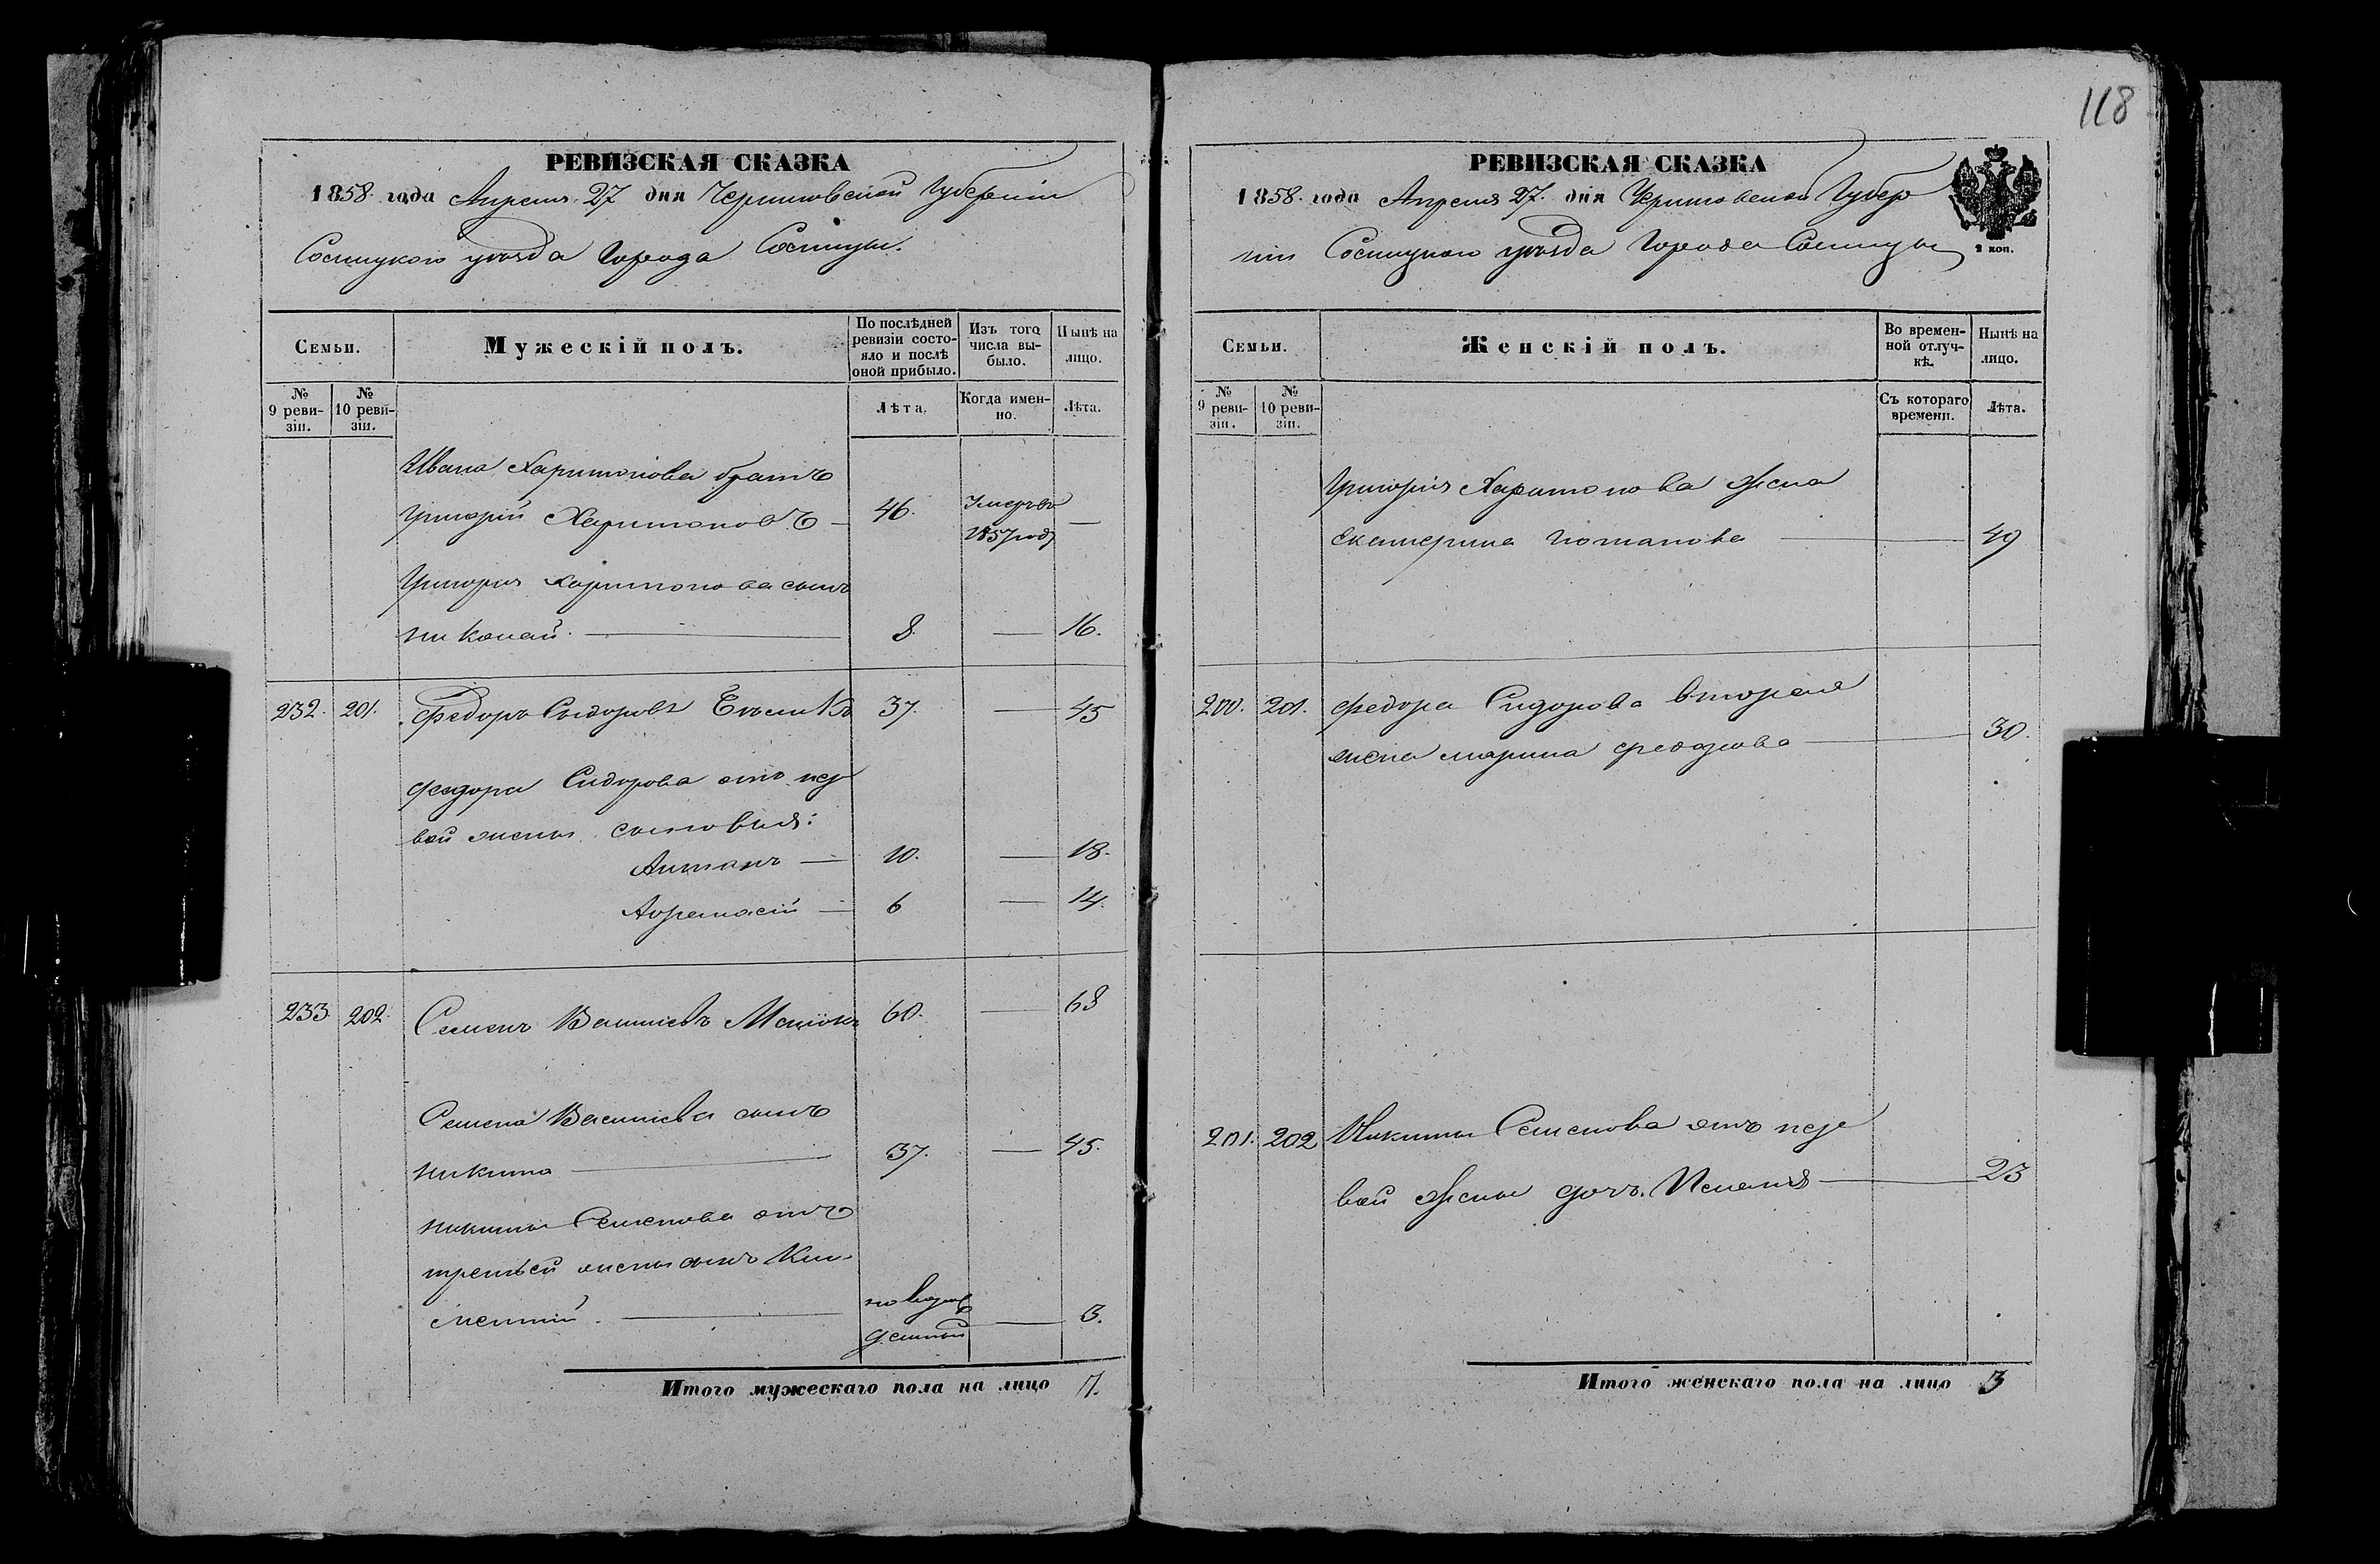 118
РЕВИЗСКАЯ СКАЗКА
1858 года Апреля 27 дня Черниговской Губерніи
Сосницкого уѣзда Города Сосницы.
Семьи.
Мужескій полъ.
По послѣдней ревизіи состояло и послѣ оной прибыло.
Изъ того числа выбыло.
Нынѣ на лицо.
№ 9 ревизіи.
№ 10 ревизіи.
Лѣта.
Когда именно.
Лѣта.
Ивана Харитонова братъ
Григорій Харитоновъ — 46. Умеръ въ 1857 году —
Григория Харитонова сынъ
Николай. — 8. — 16.
232. 201. Федоръ Сидоровъ 37. — 45
Федора Сидорова отъ пер
вой жены сыновья:
Антонъ — 10. — 18.
6 — 14.
233. 202. Семенъ Васильевъ 60. — 68
Семена Васильева сынъ
Никита — 37. — 45.
Никиты Семенова отъ
третьей жены сынъ Кли-
ментий. — новорож
денный — 3.
Итого мужескаго пола на лицо 7.
РЕВИЗСКАЯ СКАЗКА
1858. года Апреля 27. дня Черниговской Губер
ніи Сосницкого уѣзда Города Сосницы
2 коп.
Семьи.
Женскій полъ.
Во временной отлучкѣ.
Нынѣ на лицо.
№ 9 ревизіи.
№ 10 ревизіи.
Съ котораго времени.
Лѣта.
Григорія Харитонова жена
Екатерина Потапова — 49
200. 201. Федора Сидорова вторая
жена Марина Федорова — 30.
201. 202 Никиты Семенова отъ пер
вой жены дочь — 23
Итого женскаго пола на лицо 3